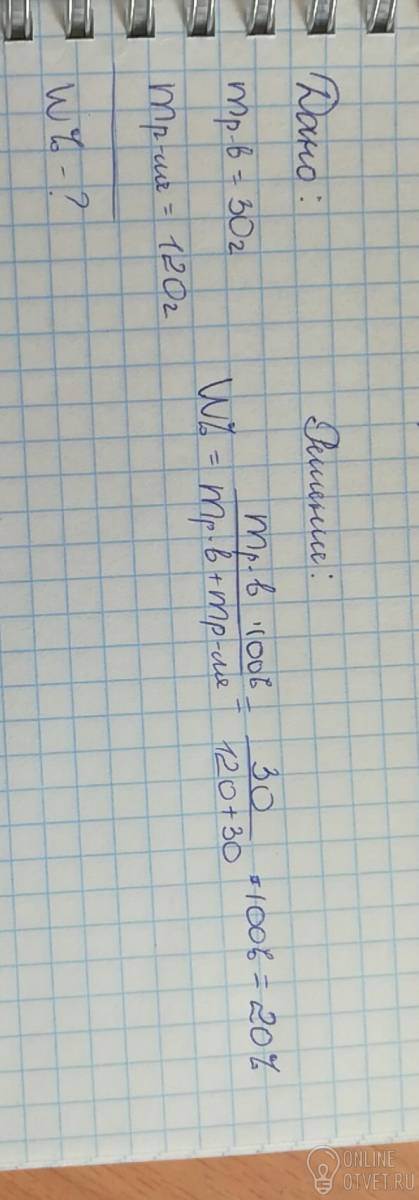 Дано:
mр-в = 30г
mр-ля = 120г
W% - ?
Решение:
W% = mр-в · 100% / mр-в + mр-ля = 30 / 120+30 · 100% = 20%
ONLINE
OTVET.RU